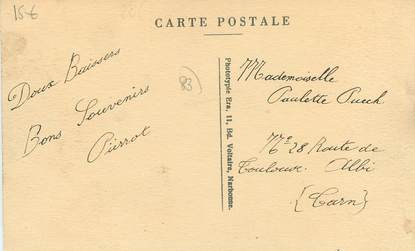 15€
CARTE POSTALE
Doux Baisers
Bons Souvenirs
Pierrot
83
Phototypie Era, 11, Bd. Voltaire, Narbonne.
Mademoiselle
Paulette Puech
N° 28 Route de
Toulouse Albi
(Tarn)